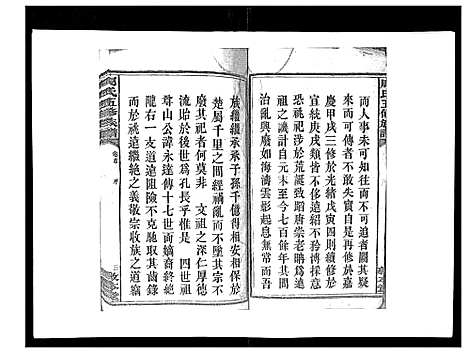 而人事未可知往而不可追者闕其疑
來而可傳者不敢失實自是而再修於嘉
慶甲戌三修於光緒戊寅四則續修於
宣統庚戌類皆不侈遠紹不矜博採意
恐祧祀涉於荒誕致蹈唐崇老聃爲遠
祖之譏議自元末至今七百餘年其間
治亂興廢如海濤雲影起息無常而吾
族繼繼承承子孫千億得相保於
楚屬千里之間經禍亂而不墜其宗不
廢其祀者何莫非 文祖之深仁厚德
流貽於後世者孔長乎惟是 四世祖
韋山公諱永達傳十七世而嫡裔終
隴右一支道遠阻險不克馳取其齒錄
而於祧遠繼絕之義敬宗收族之道竊
五修族譜
卷首 序
三 敦本堂